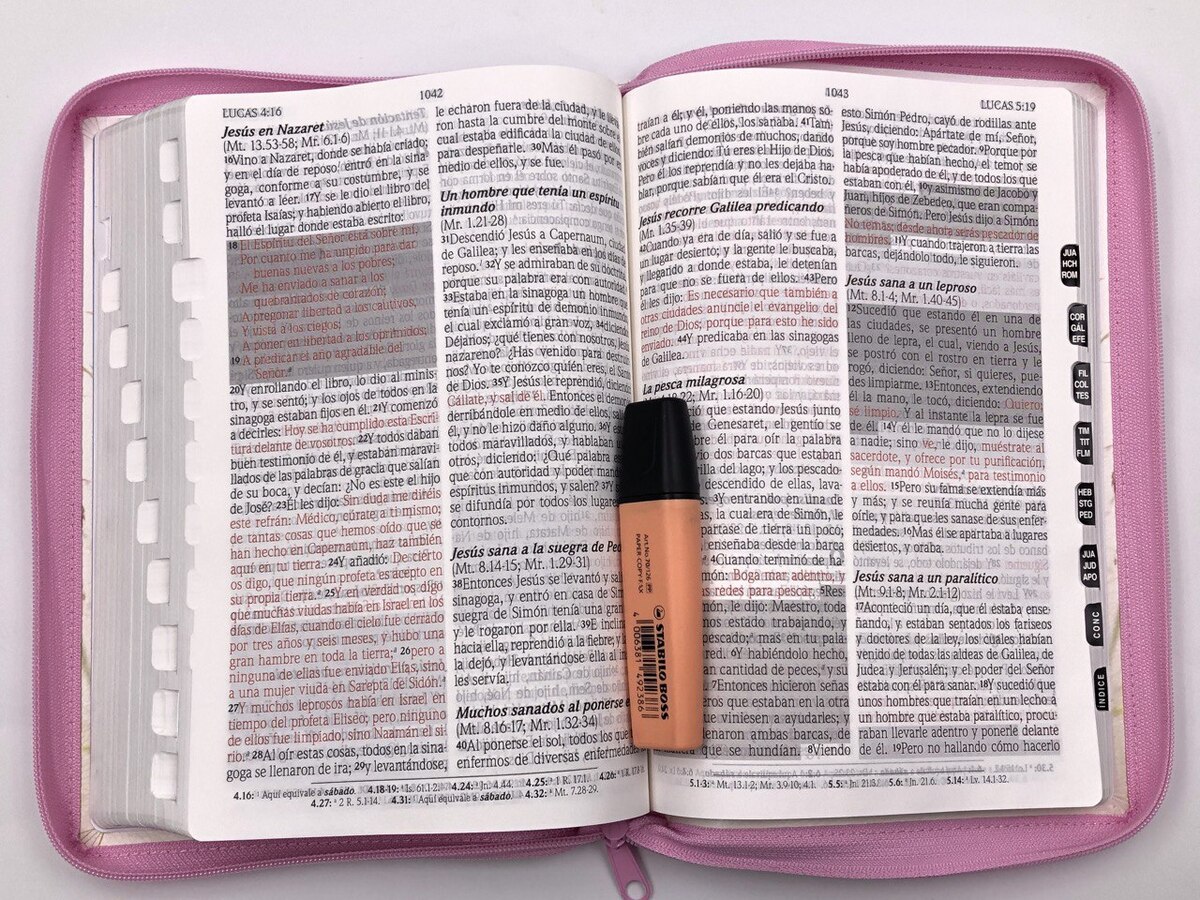 LUCAS 4:16
1042
Jesús en Nazaret
(Mt. 13.53-58; Mr. 6.1-6)
16Vino a Nazaret, donde se había criado;
y en el día de reposo* entró en la sina-
goga, conforme a su costumbre, y se
levantó a leer. 17Y se le dio el libro del
profeta Isaías; y habiendo abierto el libro,
halló el lugar donde estaba escrito:
18 El Espíritu del Señor está sobre mí,
Por cuanto me ha ungido para dar
buenas nuevas a los pobres;
Me ha enviado a sanar a los
quebrantados de corazón;
A pregonar libertad a los cautivos,
Y vista a los ciegos;
A poner en libertad a los oprimidos;
19 A predicar el año agradable del
Señor.a
20Y enrollando el libro, lo dio al minis-
tro, y se sentó; y los ojos de todos en la
sinagoga estaban fijos en él. 21Y comenzó
a decirles: Hoy se ha cumplido esta Escri-
tura delante de vosotros. 22Y todos daban
buen testimonio de él, y estaban maravi-
llados de las palabras de gracia que salían
de su boca, y decían: ¿No es este el hijo
de José? 23Él les dijo: Sin duda me diréis
este refrán: Médico, cúrate a ti mismo;
de tantas cosas que hemos oído que se
han hecho en Capernaum, haz también
aquí en tu tierra. 24Y añadió: De cierto
os digo, que ningún profeta es acepto en
su propia tierra.a 25Y en verdad os digo
que muchas viudas había en Israel en los
días de Elías, cuando el cielo fue cerrado
por tres años y seis meses, y hubo una
gran hambre en toda la tierra;a 26pero a
ninguna de ellas fue enviado Elías, sino
a una mujer viuda en Sarepta de Sidón.a
27Y muchos leprosos había en Israel en
tiempo del profeta Eliseo; pero ninguno
de ellos fue limpiado, sino Naamán el si-
rio.a 28Al oír estas cosas, todos en la sina-
goga se llenaron de ira; 29y levantándose,
le echaron fuera de la ciudad, y le
ron hasta la cumbre del monte sobre el
cual estaba edificada la ciudad de
para despeñarle. 30Mas él pasó por
medio de ellos, y se fue.
Un hombre que tenía un espíritu
inmundo
(Mr. 1.21-28)
31Descendió Jesús a Capernaum, ciudad
de Galilea; y les enseñaba en los días de
reposo.* 32Y se admiraban de su doctrina,
porque su palabra era con autoridad.
33Estaba en la sinagoga un hombre que
tenía un espíritu de demonio inmundo,
el cual exclamó a gran voz, 34diciendo:
Déjanos; ¿qué tienes con nosotros, Jesús
nazareno? ¿Has venido para destruir-
nos? Yo te conozco quién eres, el Santo
de Dios. 35Y Jesús le reprendió, diciendo:
Cállate, y sal de él. Entonces el demonio,
derribándole en medio de ellos, salió de
él, y no le hizo daño alguno. 36Y estaban
todos maravillados, y hablaban unos a
otros, diciendo: ¿Qué palabra es esta,
que con autoridad y poder manda a los
espíritus inmundos, y salen? 37Y su fama
se difundía por todos los lugares de los
contornos.
Jesús sana a la suegra de Pe
(Mt. 8.14-15; Mr. 1.29-31)
38Entonces Jesús se levantó y salió de la
sinagoga, y entró en casa de Simón. La
suegra de Simón tenía una gran
y le rogaron por ella. 39E inclinándose
hacia ella, reprendió a la fiebre; y la fiebre
la dejó, y levantándose ella al instante,
les servía.
Muchos sanados al ponerse e
(Mt. 8.16-17; Mr. 1.32-34)
40Al ponerse el sol, todos los que
enfermos de diversas enfermedades
4.16: Aquí equivale a sábado. 4.18-19: a Is. 61.1-2. 4.24: a Jn. 4.44. 4.25: a 1 R. 17.1. 4.26: a 1 R. 17.8-
4.27: a 2 R. 5.1-14. 4.31: Aquí equivale a sábado. 4.32: a Mt. 7.28-29.
1043
LUCAS 5:19
traían a él; y él, poniendo las manos so-
bre cada uno de ellos, los sanaba. 41Tam-
bién salían demonios de muchos, dando
voces y diciendo: Tú eres el Hijo de Dios.
Pero él los reprendía y no les dejaba ha-
blar, porque sabían que él era el Cristo.
Jesús recorre Galilea predicando
(Mr. 1.35-39)
42Cuando ya era de día, salió y se fue a
un lugar desierto; y la gente le buscaba,
y llegando a donde estaba, le detenían
para que no se fuera de ellos. 43Pero
él les dijo: Es necesario que también a
otras ciudades anuncie el evangelio del
reino de Dios; porque para esto he sido
enviado. 44Y predicaba en las sinagogas
de Galilea.
La pesca milagrosa
18-22; Mr. 1.16-20)
ció que estando Jesús junto
de Genesaret, el gentío se
bre él para oír la palabra
io dos barcas que estaban
illa del lago; y los pescado-
descendido de ellas, lava-
s. 3Y entrando en una de
s, la cual era de Simón, le
partase de tierra un poco;
enseñaba desde la barca
4Cuando terminó de ha-
món: Boga mar adentro, y
as redes para pescar. 5Res-
món, le dijo: Maestro, toda
estado trabajando, y
pescado; mas en tu pala-
red. 6Y habiéndolo hecho,
cantidad de peces,a y su
7Entonces hicieron señas
ros que estaban en la otra
viniesen a ayudarles; y
enaron ambas barcas,
que se hundían. 8Viendo
esto Simón Pedro, cayó de rodillas ante
Jesús, diciendo: Apártate de mí, Señor,
porque soy hombre pecador. 9Porque por
la pesca que habían hecho, el temor se
había apoderado de él, y de todos los que
estaban con él, 10y asimismo de Jacobo y
Juan, hijos de Zebedeo, que eran compa-
ñeros de Simón. Pero Jesús dijo a Simón:
No temas; desde ahora serás pescador de
hombres. 11Y cuando trajeron a tierra las
barcas, dejándolo todo, le siguieron.
Jesús sana a un leproso
(Mt. 8.1-4; Mr. 1.40-45)
12Sucedió que estando él en una de
las ciudades, se presentó un hombre
lleno de lepra, el cual, viendo a Jesús,
se postró con el rostro en tierra y le
rogó, diciendo: Señor, si quieres, pue-
des limpiarme. 13Entonces, extendiendo
la mano, le tocó, diciendo: Quiero;
sé limpio. Y al instante la lepra se fue
de él. 14Y él le mandó que no lo dijese
a nadie; sino ve, le dijo, muéstrate al
sacerdote, y ofrece por tu purificación,
según mandó Moisés,a para testimonio
a ellos. 15Pero su fama se extendía más
y más; y se reunía mucha gente para
oírle, y para que les sanase de sus enfer-
medades. 16Mas él se apartaba a lugares
desiertos, y oraba.
Jesús sana a un paralítico
(Mt. 9.1-8; Mr. 2.1-12)
17Aconteció un día, que él estaba ense-
ñando, y estaban sentados los fariseos
y doctores de la ley, los cuales habían
venido de todas las aldeas de Galilea, de
Judea y Jerusalén; y el poder del Señor
estaba con él para sanar. 18Y sucedió que
unos hombres que traían en un lecho a
un hombre que estaba paralítico, procu-
raban llevarle adentro y ponerle delante
de él. 19Pero no hallando cómo hacerlo
5.1-3: a Mt. 13.1-2; Mr. 3.9-10; 4.1. 5.5: a Jn. 21.3. 5.6: a Jn. 21.6. 5.14: a Lv. 14.1-32.
JUA
HCH
ROM
COR
GÁL
EFE
FIL
COL
TES
TIM
TIT
FLM
HEB
STG
PED
JUA
JUD
APO
CONC
ÍNDICE
Art.No. 70/126
PAPER-COPY-FAX
STABILO BOSS
4 006381 492386